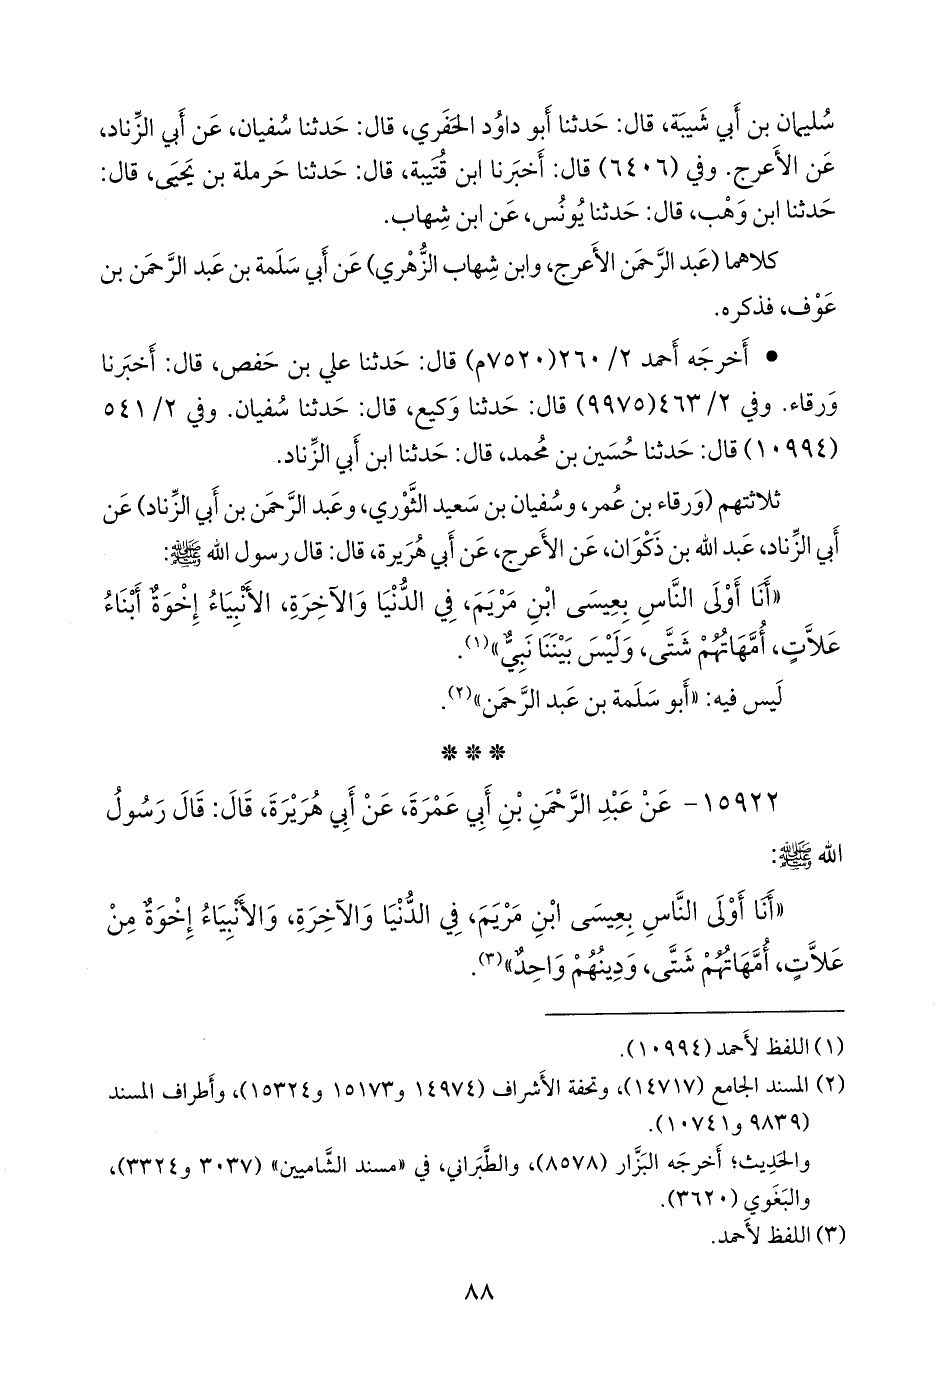 سُليمان بن أَبي شَيبَة، قال: حَدثنا أَبو داوُد الحَفَري، قال: حَدثنا سُفيان، عَن أَبي الزِّناد،
عَن الأَعرج. وفي (٦٤٠٦) قال: أَخبَرنا ابن قُتَيبة، قال: حَدثنا حَرملة بن يَحيَى، قال:
حَدثنا ابن وَهْب، قال: حَدثنا يُونُس، عَن ابن شِهاب.
كلاهما (عَبد الرَّحمَن الأَعرج، وابن شِهاب الزُّهْري) عَن أَبي سَلَمة بن عَبد الرَّحمَن بن
عَوْف، فذكره.
• أَخرجَه أَحمد ٢/ ٢٦٠ (٧٥٢٠م) قال: حَدثنا علي بن حَفص، قال: أَخبَرنا
وَرقاء. وفي ٢/ ٤٦٣ (٩٩٧٥) قال: حَدثنا وَكيع، قال: حَدثنا سُفيان. وفي ٢/ ٥٤١
(١٠٩٩٤) قال: حَدثنا حُسَين بن مُحمد، قال: حَدثنا ابن أَبي الزِّناد.
ثلاثتهم (وَرقاء بن عُمر، وسُفيان بن سَعيد الثَّوْري، وعَبد الرَّحمَن بن أَبي الزِّناد) عَن
أَبي الزِّناد، عَبد الله بن ذَكْوَان، عَن الأَعرج، عَن أَبي هُرَيرة، قال: قال رسول الله ﷺ:
«أَنَا أَوْلَى النَّاسِ بِعِيسَى ابْنِ مَرْيَمَ، فِي الدُّنْيَا وَالآخِرَةِ، الأَنْبِيَاءُ إِخْوَةٌ أَبْنَاءُ
عَلاَّتٍ، أُمَّهَاتُهُمْ شَتَّى، وَلَيْسَ بَيْنَنَا نَبِيٌّ»(١).
لَيس فيه: «أَبو سَلَمة بن عَبد الرَّحمَن»(٢).
❋ ❋ ❋
١٥٩٢٢- عَنْ عَبْدِ الرَّحْمَنِ بْنِ أَبِي عَمْرَةَ، عَنْ أَبِي هُرَيْرَةَ، قَالَ: قَالَ رَسُولُ
الله ﷺ:
«أَنَا أَوْلَى النَّاسِ بِعِيسَى ابْنِ مَرْيَمَ، فِي الدُّنْيَا وَالآخِرَةِ، وَالأَنْبِيَاءُ إِخْوَةٌ مِنْ
عَلاَّتٍ، أُمَّهَاتُهُمْ شَتَّى، وَدِينُهُمْ وَاحِدٌ»(٣).
(١) اللفظ لأَحمد (١٠٩٩٤).
(٢) المسند الجامع (١٤٧١٧)، وتحفة الأَشراف (١٤٩٧٤ و١٥١٧٣ و١٥٣٢٤)، وأَطراف المسند
(٩٨٣٩ و١٠٧٤١).
والحَدِيث؛ أَخرجَه البَزَّار (٨٥٧٨)، والطَّبَراني، في «مسند الشَّاميين» (٣٠٣٧ و٣٣٢٤)،
والبَغَوي (٣٦٢٠).
(٣) اللفظ لأَحمد.
٨٨